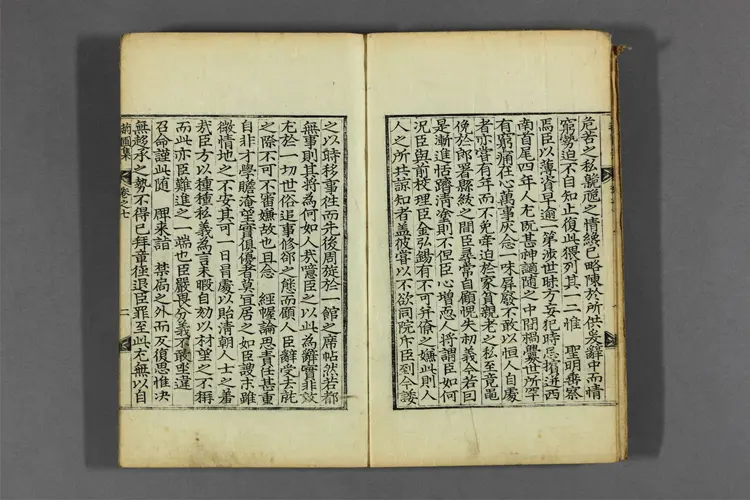 危苦之私兢惶之情纔已略陳於所供爰辭中而情
窮勢迫不自知止復此猥列其一二惟 聖明垂察
焉臣以薄資早逾一第涉世昧方妄犯時忌擯迸西
南首尾四年人尤阮甚神謫隨之中間禍釁世所罕
有窮痛在心萬事灰念一味屛廢不敢以恒人自處
者亦嘗有年而不免牽迫於家貧親老之私至竟黽
俛於郎署縣紱之間臣尋常自顧愧失初義今若因
是漸進恬躋淸塗則不但臣心增恧人將謂臣如何
况臣與前校理臣金弘錫有不可幷僚之嫌此則人
人之所共諒知者蓋彼嘗以不欲同院斥臣到今諉
之以時移事往而先後周旋於一館之席帖然若都
無事則其將爲何如人哉噫臣之以此爲辭實非效
尤於一切世俗追事修郤之態而顧人臣辭受去就
之際不可不審嫌故也且念 經幄論思責任甚重
自非才學贍淹望實俱優者莫宜居之如臣謏末雖
微情地之不安其可一日冒處以貽淸朝人士之羞
哉臣方以種種私義爲言未暇自劾以材望之不稱
而此亦臣難進之一端也臣嚴畏分義不敢坐違
召命謹此隨 牌來詣 禁局之外而反復思惟决
無趨承之勢不得已拜章徑退臣罪至此尤無以自
蘭圃集
卷之七
二